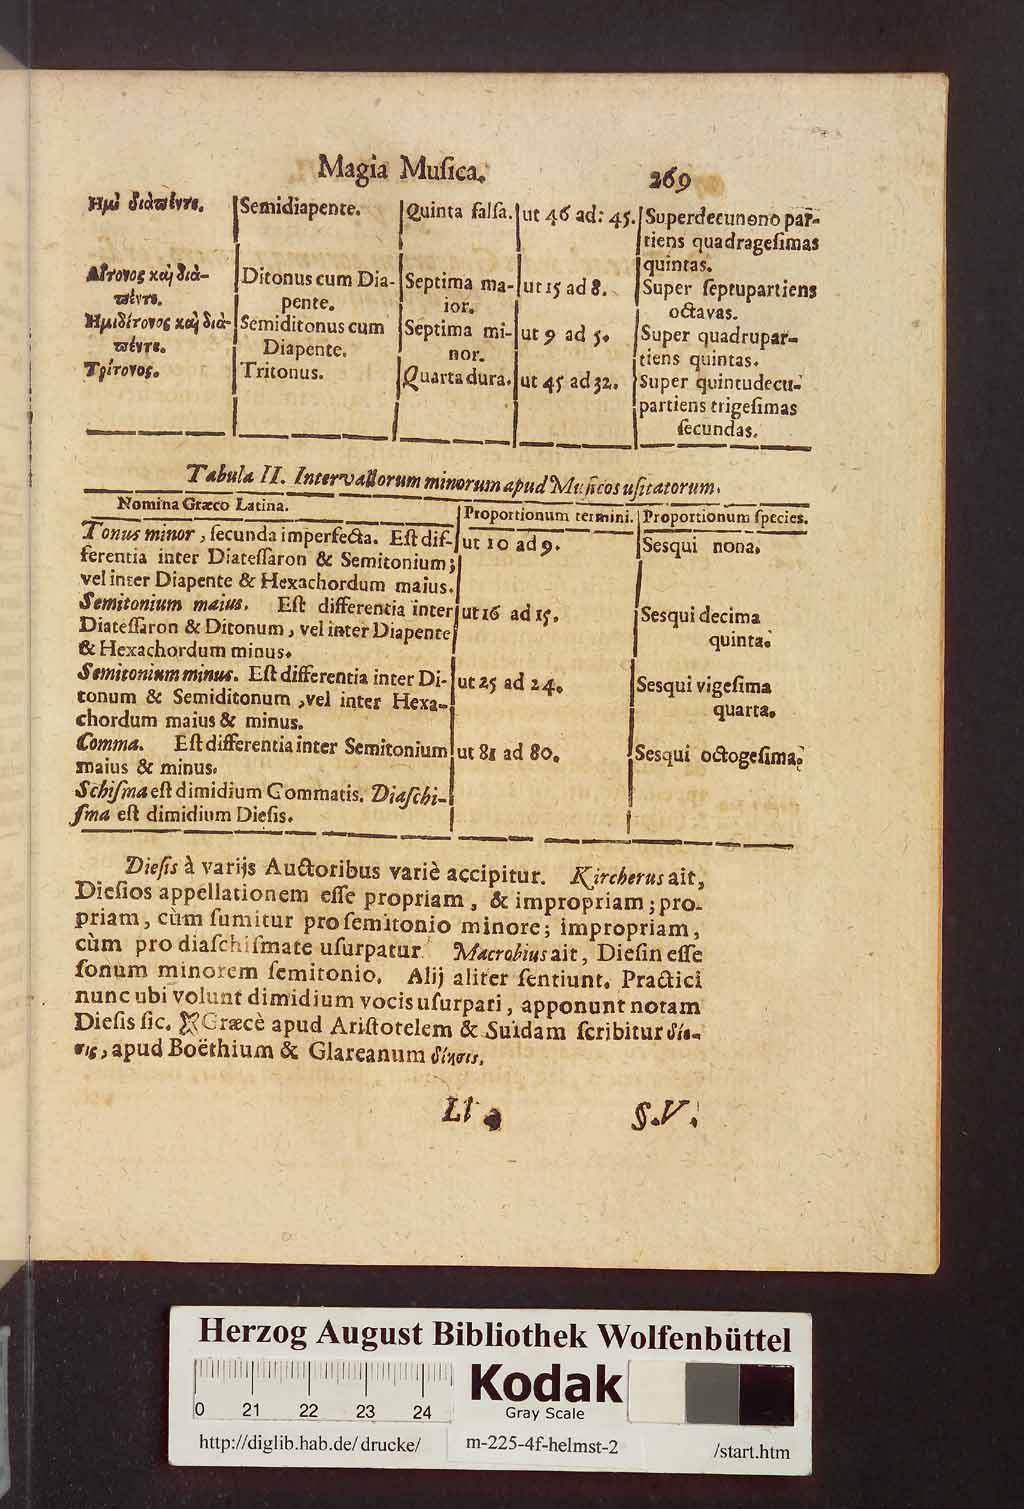 Magia Muſica. 269
Ημι διαπέντε. Semidiapente. Quinta falſa. ut 46 ad: 45. Superdecunono par-
tiens quadrageſimas
quintas.
Δίτονος καὶ διὰ- Ditonus cum Dia- Septima ma- ut 15 ad 8. Super ſeptupartiens
πέντε. pente. ior. octavas.
Ημιδίτονος καὶ διὰ- Semiditonus cum Septima mi- ut 9 ad 5. Super quadrupar-
πέντε. Diapente. nor. tiens quintas.
Τρίτονος. Tritonus. Quarta dura. ut 45 ad 32. Super quintudecu-
partiens trigeſimas
ſecundas.
Tabula II. Intervallorum minorum apud Muſicos uſitatorum.
Nomina Græco Latina. Proportionum termini. Proportionum ſpecies.
Tonus minor, ſecunda imperfecta. Eſt dif- ut 10 ad 9. Sesqui nona.
ferentia inter Diateſſaron & Semitonium;
vel inter Diapente & Hexachordum maius.
Semitonium maius. Eſt differentia inter ut 16 ad 15. Sesqui decima
Diateſſaron & Ditonum, vel inter Diapente quinta.
& Hexachordum minus.
Semitonium minus. Eſt differentia inter Di- ut 25 ad 24. Sesqui vigeſima
tonum & Semiditonum, vel inter Hexa- quarta.
chordum maius & minus.
Comma. Eſt differentia inter Semitonium ut 81 ad 80. Sesqui octogeſima.
maius & minus.
Schiſma eſt dimidium Commatis. Diaſchi-
ſma eſt dimidium Dieſis.
Dieſis à varijs Auctoribus variè accipitur. Kircherus ait,
Dieſios appellationem eſſe propriam, & impropriam; pro-
priam, cùm ſumitur pro ſemitonio minore; impropriam,
cùm pro diaſchiſmate uſurpatur. Macrobius ait, Dieſin eſſe
ſonum minorem ſemitonio. Alij aliter ſentiunt. Practici
nunc ubi volunt dimidium vocis uſurpari, apponunt notam
Dieſis ſic. Græcè apud Ariſtotelem & Suidam ſcribitur δίε-
σις, apud Boëthium & Glareanum δίησις.
Ll §. V.
Herzog August Bibliothek Wolfenbüttel
0 21 22 23 24
Kodak
Gray Scale
http://diglib.hab.de/drucke/ m-225-4f-helmst-2 /start.htm